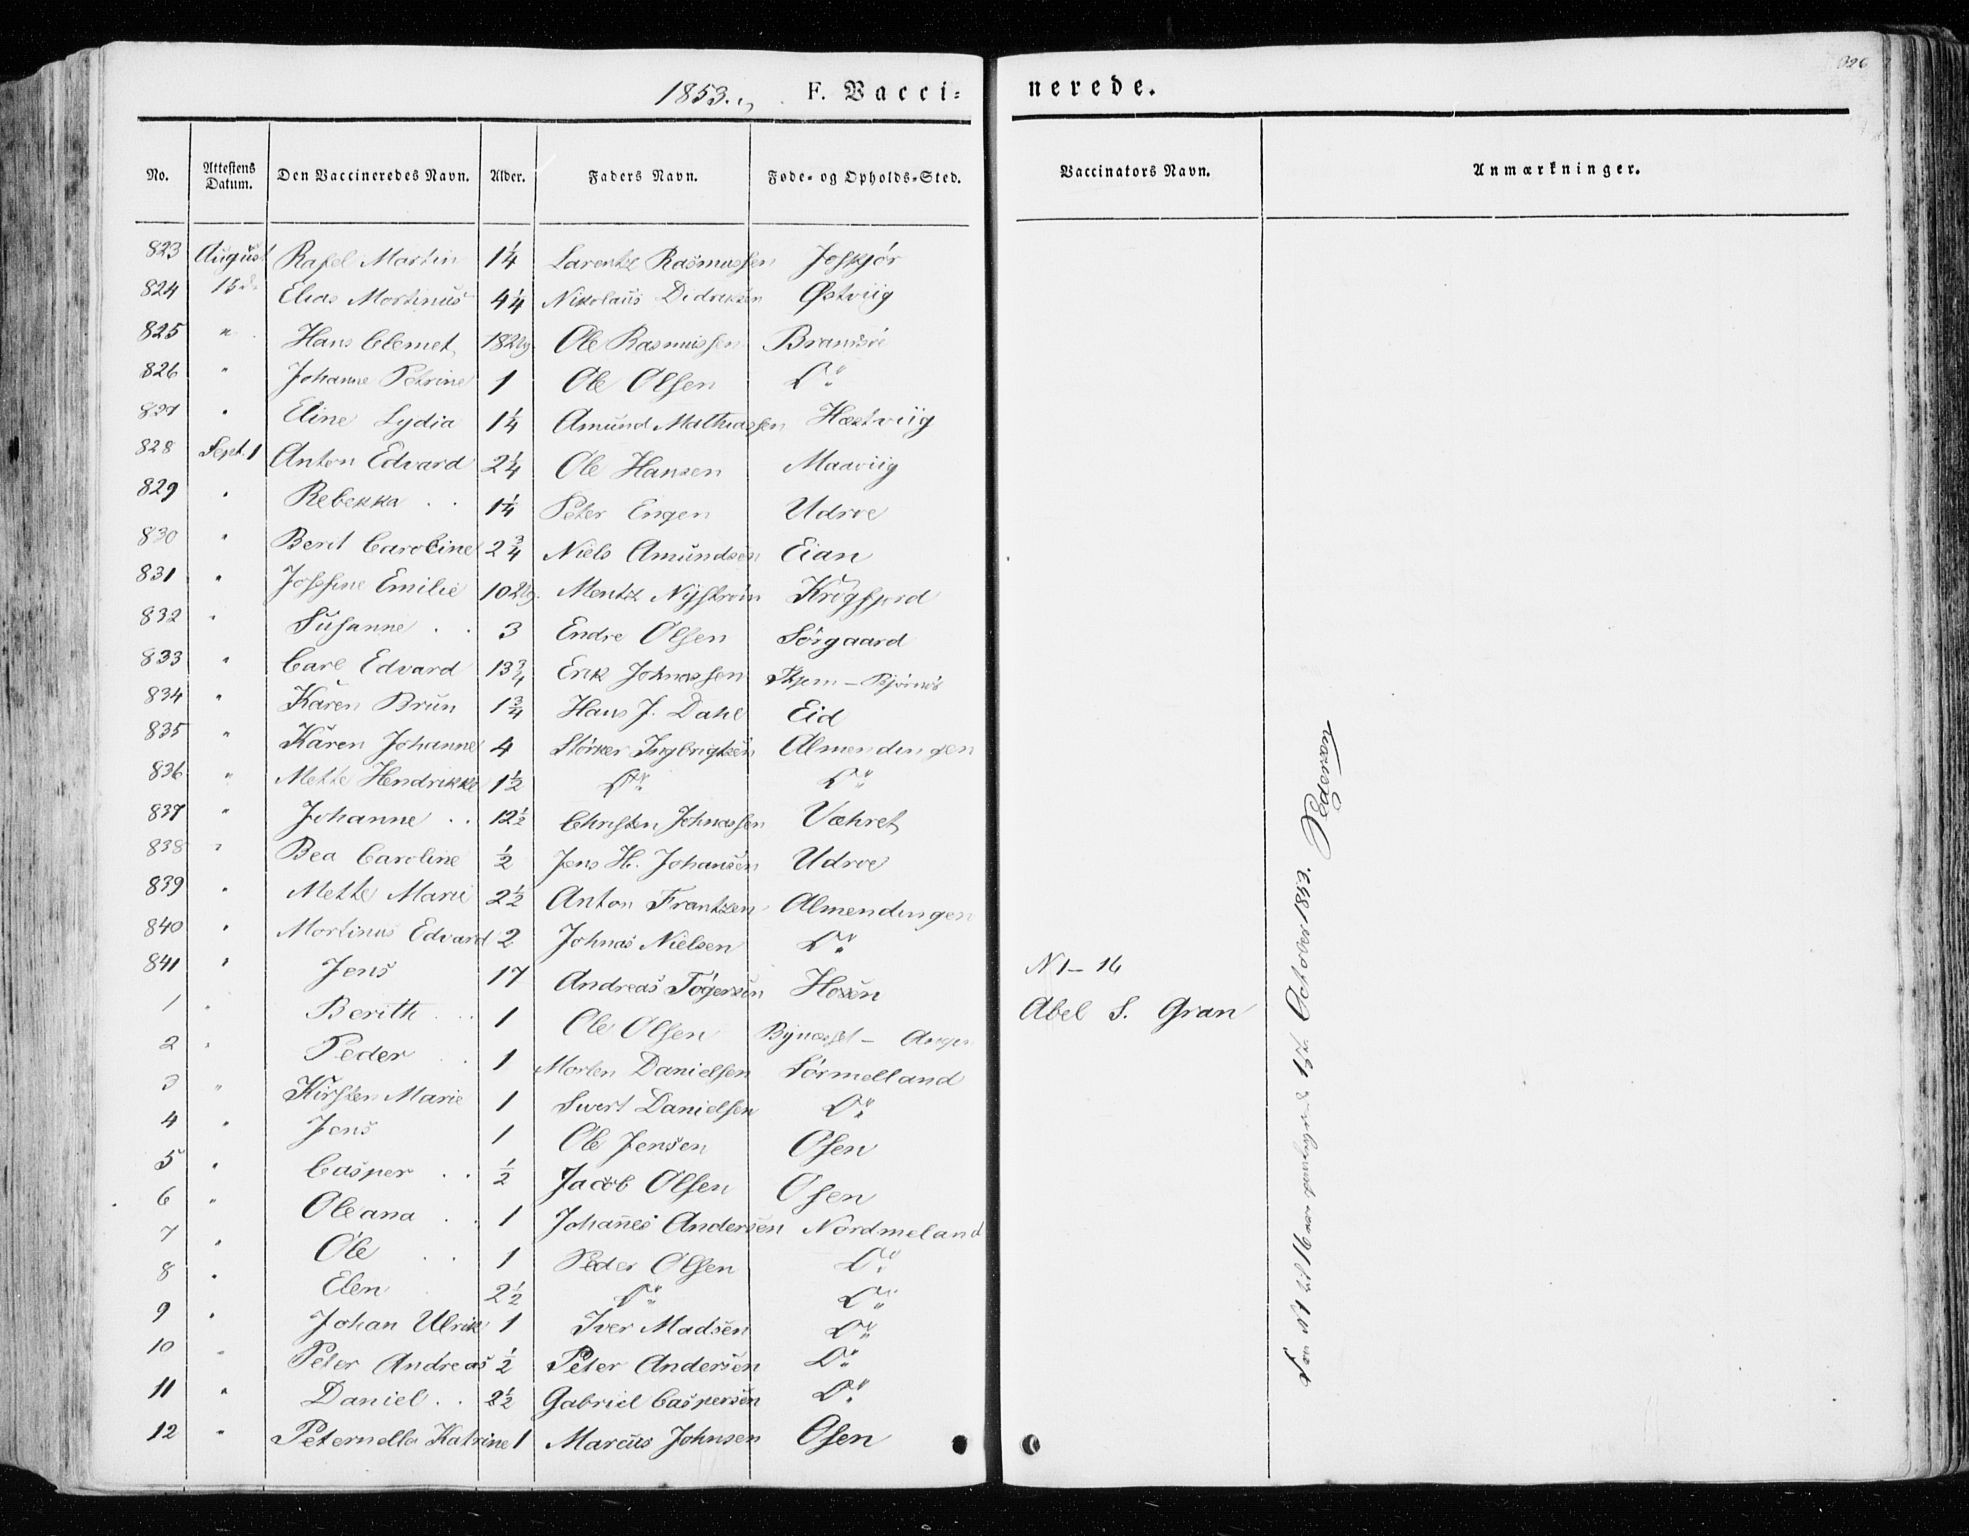 1853. F. Vacci=
nerede.
No. Attestens Datum. Den Vaccineredes Navn. Alder. Faders Navn. Føde- og Opholds-Sted.
Vaccinators Navn. Anmærkninger.
823 August Rafel Martin 1¼ Larentz Rasmussen Joskjør
824 15de Elias Mortinus 4¼ Nikolaus Didriksen Østviig
825 " Hans Clemet Ole Rasmussen Brandsø
826 " Johanne Petrine 1 Ole Olsen Do
827 " Eline Lydia 1¼ Amund Mathiassen Hæstviig
828 Sept. 1 Anton Edvard 2¼ Ole Hansen Maaviig
829 " Rebekka 1¼ Peter Engen Udroe
830 " Berit Caroline 2¾ Niels Amundsen Eian
831 " Josefine Emilie Mentz Nystrøm Krogfjord
832 " Susanne 3 Endre Olsen Sørgaard
833 " Carl Edvard 13¾ Erik Johnassen
834 " Karen Brun 1¾ Hans J. Dahl Eid
835 " Karen Johanne 4 Størker Ingbrigtsen Almendingen
836 " Mette Hendrikke 1½ Do Do
837 " Johanne 12½ Christen Johnassen Vahret
838 " Bea Caroline ½ Jens H. Johansen Udroe
839 " Mette Marie 2½ Anton Frantzen Almendingen
840 " Mortinus Edvard 2 Johnas Nielsen Do
841 " Jens 17 Andreas Tøgersen Hosen
N 1 - 16
1 " Berith 1 Ole Olsen Bynæsset -
Abel S. Gran
2 " Peder 1 Morten Danielsen Sørmelland
3 " Kirsten Marie 1 Sivert Danielsen Do
4 " Jens 1 Ole Jensen Osen
5 " Casper ½ Jacob Olsen Osen
6 " Oleana 1 Johanes Andersen Nordmeland
7 " Ole 1 Peder Olsen Do
8 " Elen 2½ Do Do
9 " Johan Ulrik 1 Iver Madsen Do
10 " Peter Andreas ½ Peter Andersen Do
11 " Daniel 2½ Gabriel Caspersen Do
12 " Peternella Katrine 1 Marcus Johnsen Osen
N 1 til 16 October 1843. Pedersen